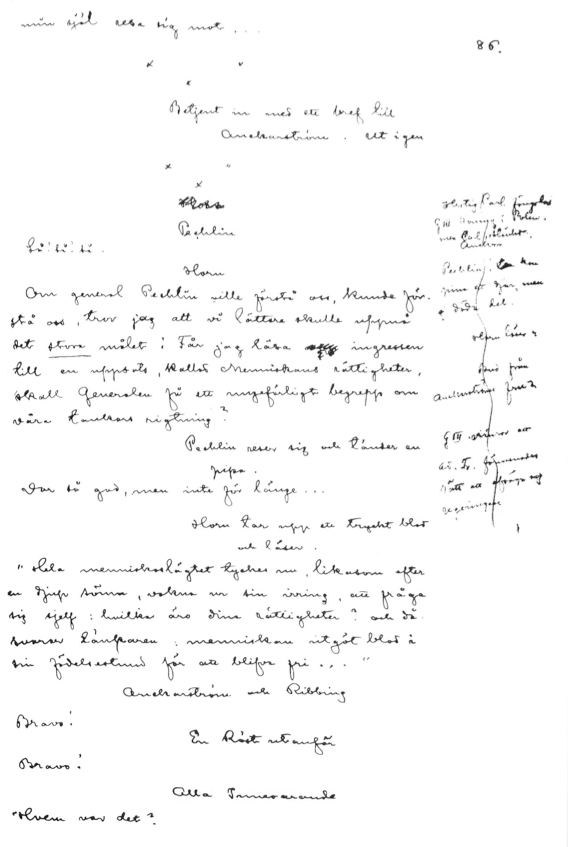 min själ resa sig mot ...
86.
Betjent in med ett bref till
Anckarström. Ut igen
Pechlin
Så! Så! Så.
Horn
Om general Pechlin ville förstå oss, kunde för-
stå oss, tror jag att vi lättare skulle uppnå
det stora målet! Får jag läsa ingressen
till en uppsats, kallad Menniskans rättigheter,
skall Generalen få ett ungefärligt begrepp om
våra tankars rigtning?
Pechlin reser sig och tänder en
pipa.
Var så god, men inte för länge ...
Horn tar upp ett tryckt blad
och läser.
"Hela menniskoslägtet tyckes nu, likasom efter
en djup sömn, vakna ur sin irring, att fråga
sig sjelf: hvilka äro dina rättigheter? och då
svarar tänkaren: menniskan utgöt blod å
sin födelsestund för att blifva fri ..."
Anckarström och Ribbing
Bravo!
En Röst utanför
Bravo!
Alla Innevarande
Hvem var det?
Hertig Carl
G III
Pechlin:
men
Horn läser
från
Anckarström
G III
att
regeringen